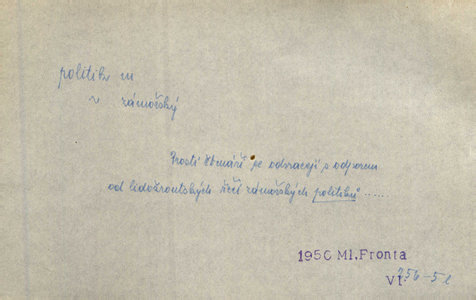 politik m
v zámořský
Prostí čtenáři se odvracejí s odporem
od lidožroutských řečí zámořských politiků ......
1950 Ml.Fronta
VI.